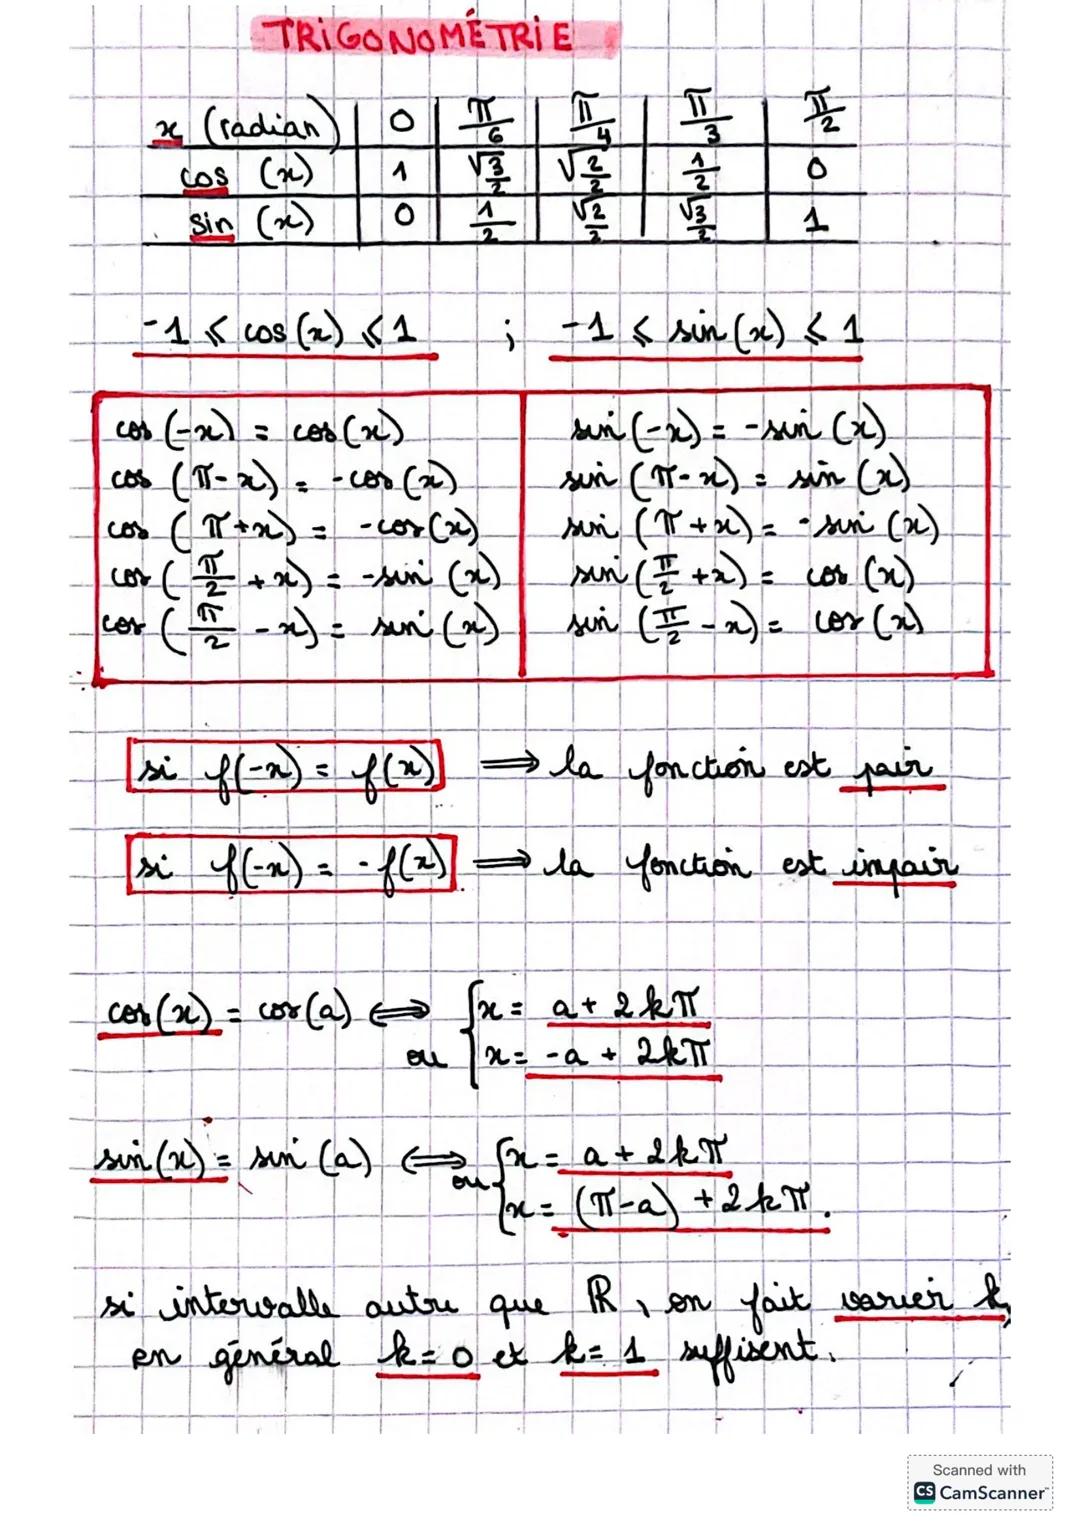 TRIGONOMÉTRIE
x (radian) | 0 | π/6 | π/4 | π/3 | π/2
cos (x) | 1 | √3/2 | √2/2 | 1/2 | 0
sin (x) | 0 | 1/2 | √2/2 | √3/2 | 1
-1 ≤ cos(x) ≤ 1 ; -1 ≤ sin(x) ≤ 1
cos (-x) = cos(x) | sin(-x) = -sin (x)
cos (π-x) = -cos(x) | sin (π-x) = sin (x)
cos (π+x) = -cos(x) | sin (π+x) = -sin (x)
cos (π/2 + x) = -sin (x) | sin (π/2 + x) = cos (x)
cos (π/2 - x) = sin (x) | sin (π/2 - x) = cos (x)
si f(-x) = f(x) ⟹ la fonction est pair
si f(-x) = -f(x) ⟹ la fonction est impair
cos(x) = cos(a) ⟺ { x = a + 2kπ
ou { x = -a + 2kπ
sin(x) = sin (a) ⟺ { x = a + 2kπ
ou { x = (π-a) + 2kπ.
si intervalle autre que ℝ, on fait varier k,
en général k=0 et k=1 suffisent.
Scanned with
CS CamScanner